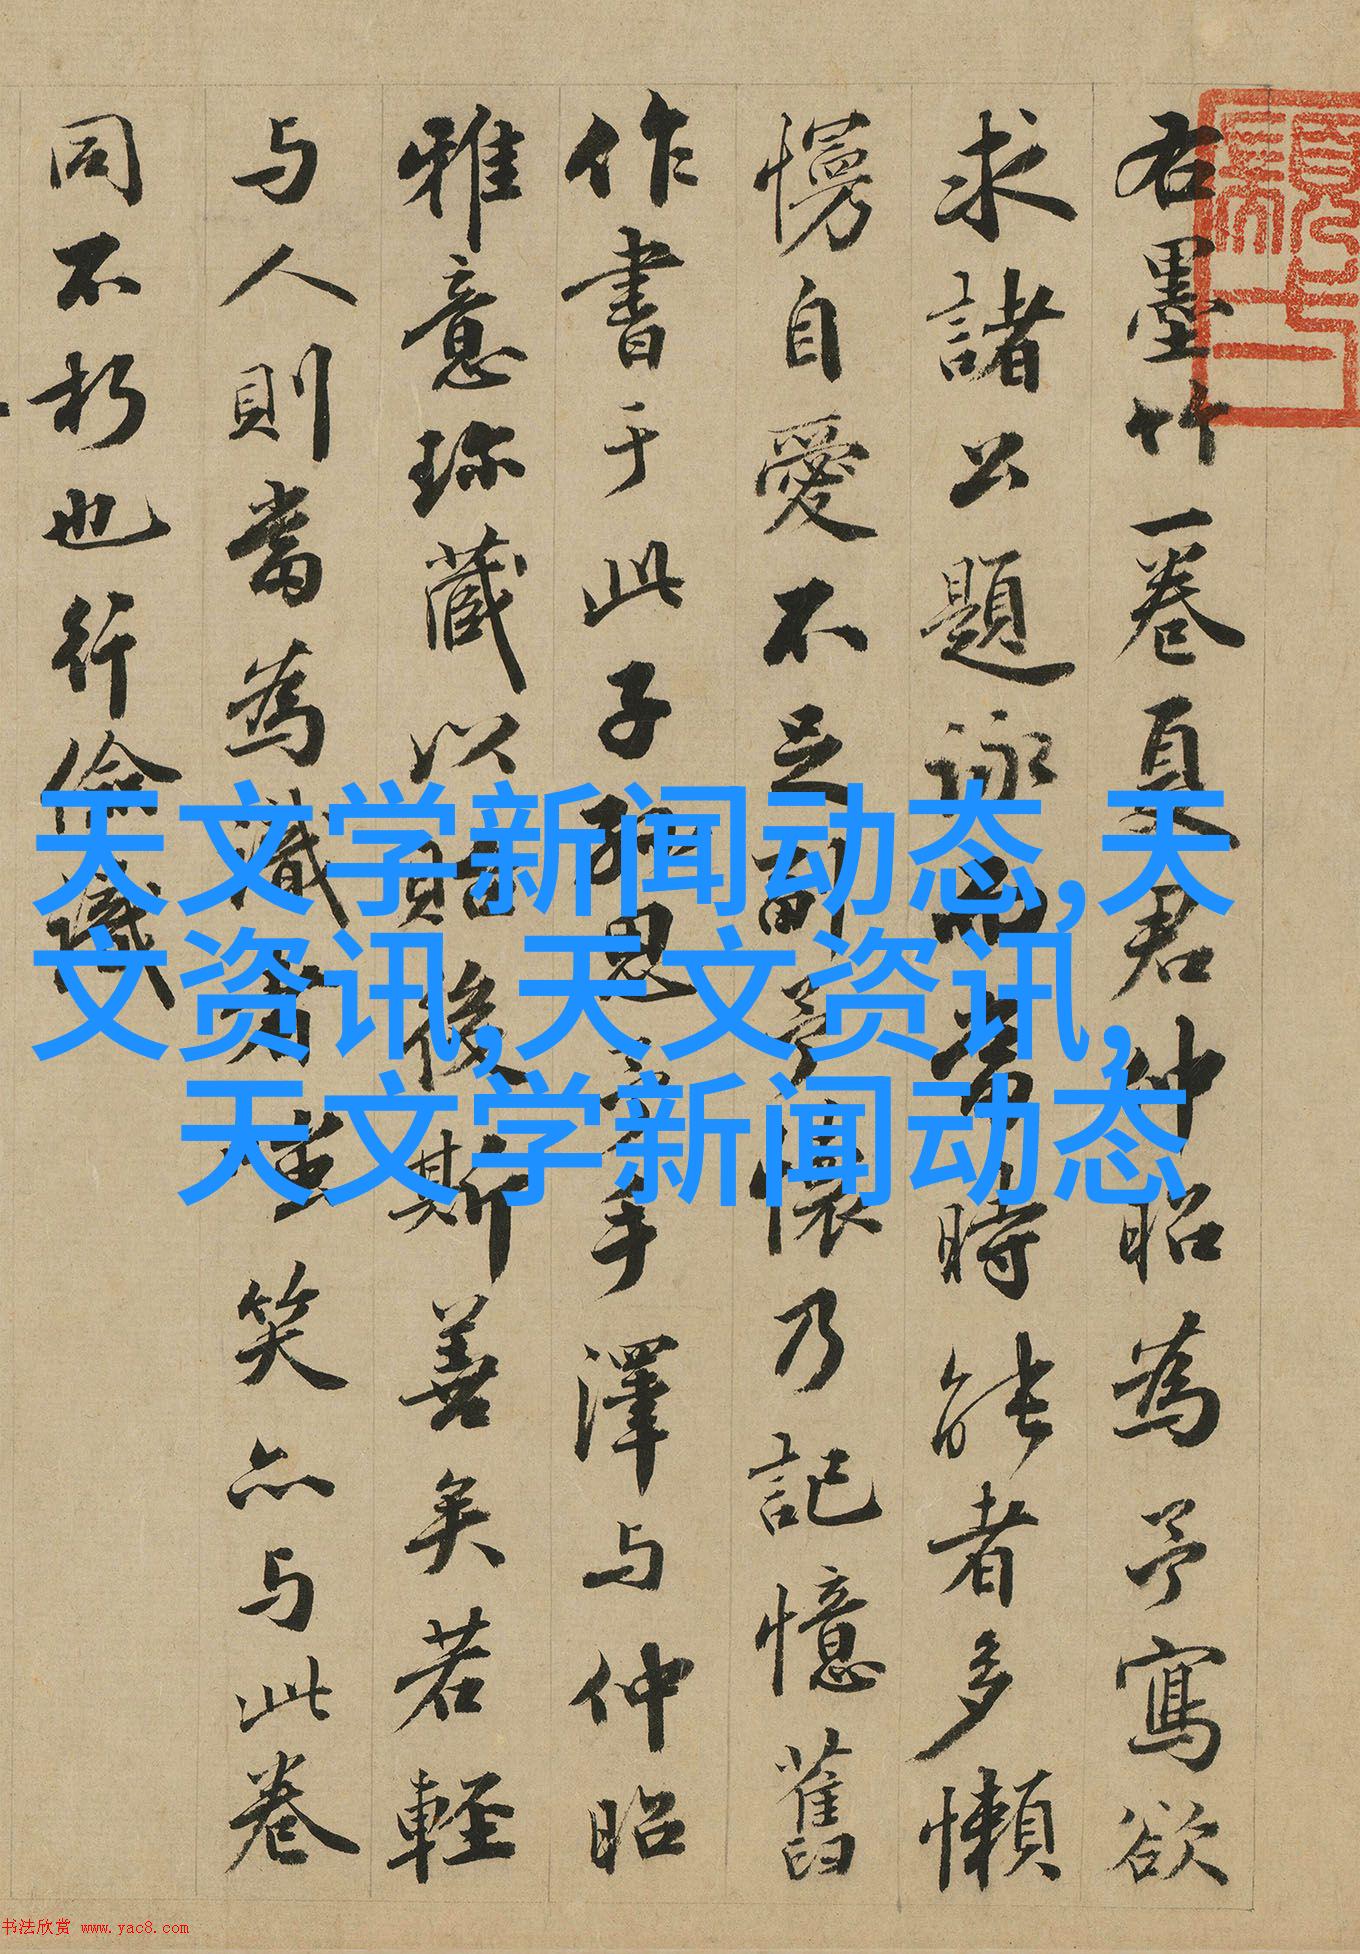 右墨竹一卷夏君仲昭為予寫欲
求諸公題詠而當時能者多懶
慢自愛不足副予懷乃記憶舊
作書于此子孫思予手澤与仲昭
雅意珎藏以貽後斯善矣若輕
与人則當為識者嗤笑亦与此卷
同不朽也行儉識
天文学新闻动态,天
文资讯,天文资讯,
天文学新闻动态
书法欣赏 www.yac8.com